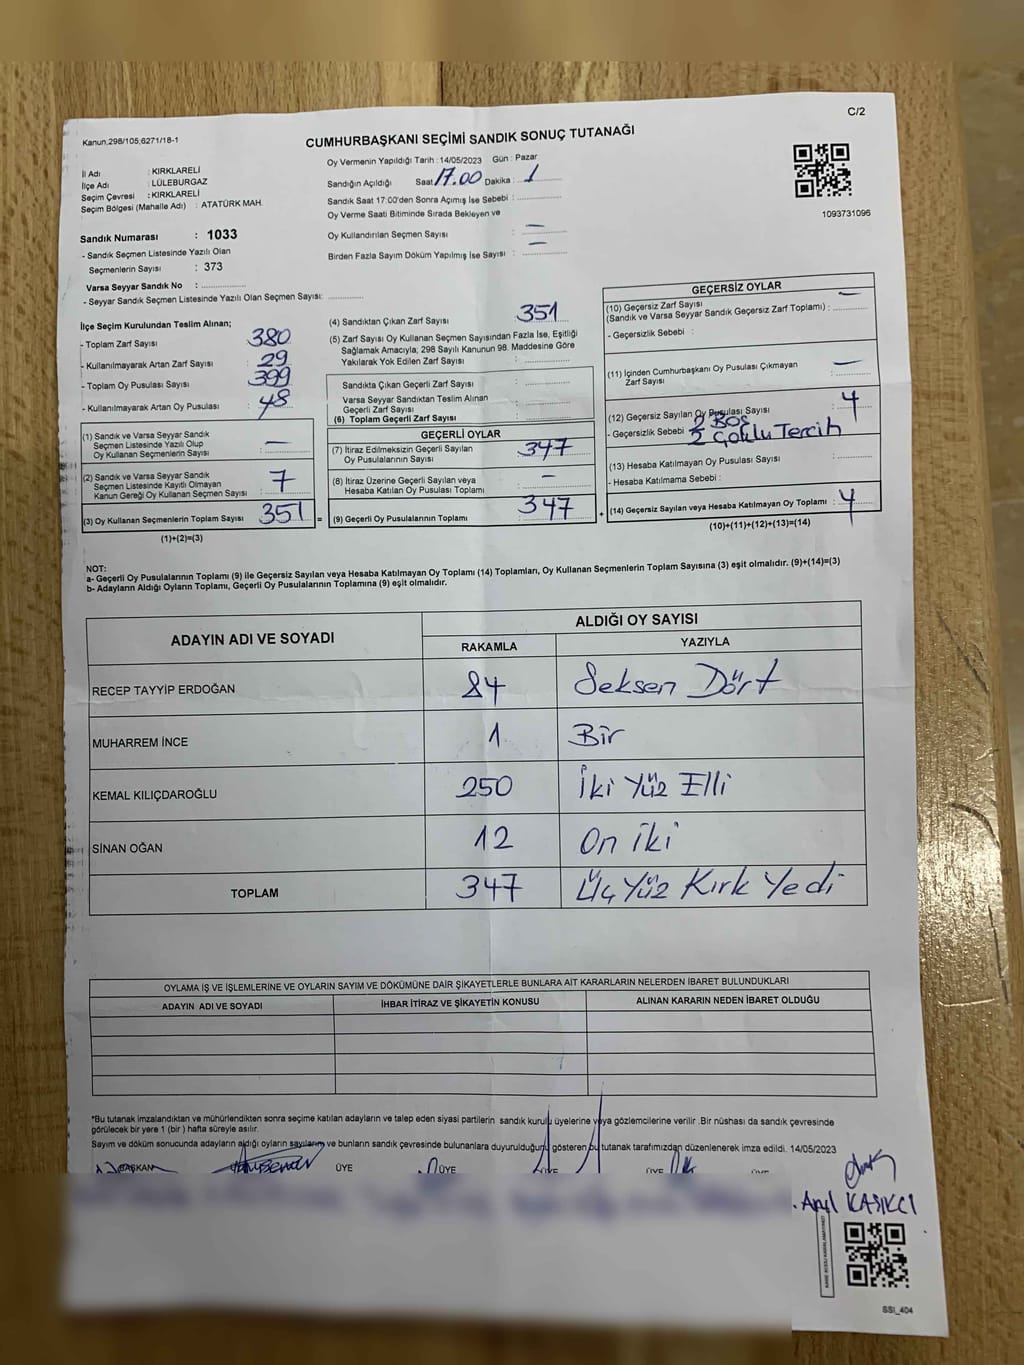 C/2
Kanun;298/105;6271/18-1
CUMHURBAŞKANI SEÇİMİ SANDIK SONUÇ TUTANAĞI
İl Adı : KIRKLARELİ
İlçe Adı : LÜLEBURGAZ
Seçim Çevresi : KIRKLARELİ
Seçim Bölgesi (Mahalle Adı) : ATATÜRK MAH.
Oy Vermenin Yapıldığı Tarih : 14/05/2023 Gün : Pazar
Sandığın Açıldığı Saat 17.00 Dakika : 1
Sandık Saat 17:00'den Sonra Açımış İse Sebebi :
Oy Verme Saati Bitiminde Sırada Bekleyen ve
Oy Kullandırılan Seçmen Sayısı : —
Birden Fazla Sayım Döküm Yapılmış İse Sayısı : —
1093731096
Sandık Numarası : 1033
- Sandık Seçmen Listesinde Yazılı Olan
Seçmenlerin Sayısı : 373
Varsa Seyyar Sandık No :
- Seyyar Sandık Seçmen Listesinde Yazılı Olan Seçmen Sayısı:
İlçe Seçim Kurulundan Teslim Alınan;
- Toplam Zarf Sayısı : 380
- Kullanılmayarak Artan Zarf Sayısı : 29
- Toplam Oy Pusulası Sayısı : 399
- Kullanılmayarak Artan Oy Pusulası : 48
(1) Sandık ve Varsa Seyyar Sandık
Seçmen Listesinde Yazılı Olup
Oy Kullanan Seçmenlerin Sayısı : —
(2) Sandık ve Varsa Seyyar Sandık
Seçmen Listesinde Kayıtlı Olmayan
Kanun Gereği Oy Kullanan Seçmen Sayısı : 7
(3) Oy Kullanan Seçmenlerin Toplam Sayısı 351 =
(1)+(2)=(3)
(4) Sandıktan Çıkan Zarf Sayısı : 351
(5) Zarf Sayısı Oy Kullanan Seçmen Sayısından Fazla İse, Eşitliği
Sağlamak Amacıyla; 298 Sayılı Kanunun 98. Maddesine Göre
Yakılarak Yok Edilen Zarf Sayısı :
Sandıkta Çıkan Geçerli Zarf Sayısı :
Varsa Seyyar Sandıktan Teslim Alınan
Geçerli Zarf Sayısı :
(6) Toplam Geçerli Zarf Sayısı :
GEÇERLİ OYLAR
(7) İtiraz Edilmeksizin Geçerli Sayılan
Oy Pusulalarının Sayısı : 347
(8) İtiraz Üzerine Geçerli Sayılan veya
Hesaba Katılan Oy Pusulası Toplamı : —
(9) Geçerli Oy Pusulalarının Toplamı : 347 +
GEÇERSİZ OYLAR
(10) Geçersiz Zarf Sayısı
(Sandık ve Varsa Seyyar Sandık Geçersiz Zarf Toplamı) : —
- Geçersizlik Sebebi :
(11) İçinden Cumhurbaşkanı Oy Pusulası Çıkmayan
Zarf Sayısı : —
(12) Geçersiz Sayılan Oy Pusulası Sayısı : 4
- Geçersizlik Sebebi 2 Boş
2 Çoklu Tercih
(13) Hesaba Katılmayan Oy Pusulası Sayısı :
- Hesaba Katılmama Sebebi :
(14) Geçersiz Sayılan veya Hesaba Katılmayan Oy Toplamı : 4
(10)+(11)+(12)+(13)=(14)
NOT:
a- Geçerli Oy Pusulalarının Toplamı (9) ile Geçersiz Sayılan veya Hesaba Katılmayan Oy Toplamı (14) Toplamları, Oy Kullanan Seçmenlerin Toplam Sayısına (3) eşit olmalıdır. (9)+(14)=(3)
b- Adayların Aldığı Oyların Toplamı, Geçerli Oy Pusulalarının Toplamına (9) eşit olmalıdır.
ADAYIN ADI VE SOYADI
ALDIĞI OY SAYISI
RAKAMLA YAZIYLA
RECEP TAYYİP ERDOĞAN 84 Seksen Dört
MUHARREM İNCE 1 Bir
KEMAL KILIÇDAROĞLU 250 İki Yüz Elli
SİNAN OĞAN 12 On iki
TOPLAM 347 Üç Yüz Kırk Yedi
OYLAMA İŞ VE İŞLEMLERİNE VE OYLARIN SAYIM VE DÖKÜMÜNE DAİR ŞİKAYETLERLE BUNLARA AİT KARARLARIN NELERDEN İBARET BULUNDUKLARI
ADAYIN ADI VE SOYADI İHBAR İTİRAZ VE ŞİKAYETİN KONUSU ALINAN KARARIN NEDEN İBARET OLDUĞU
*Bu tutanak imzalandıktan ve mühürlendikten sonra seçime katılan adayların ve talep eden siyasi partilerin sandık kurulu üyelerine veya gözlemcilerine verilir. Bir nüshası da sandık çevresinde
görülecek bir yere 1 (bir ) hafta süreyle asılır.
Sayım ve döküm sonucunda adayların aldığı oyların sayılarını ve bunların sandık çevresinde bulunanlara duyurulduğunu gösteren bu tutanak tarafımızdan düzenlenerek imza edildi. 14/05/2023
BAŞKAN ÜYE ÜYE ÜYE ÜYE ÜYE
Anıl KAŞIKCI
SSI_404